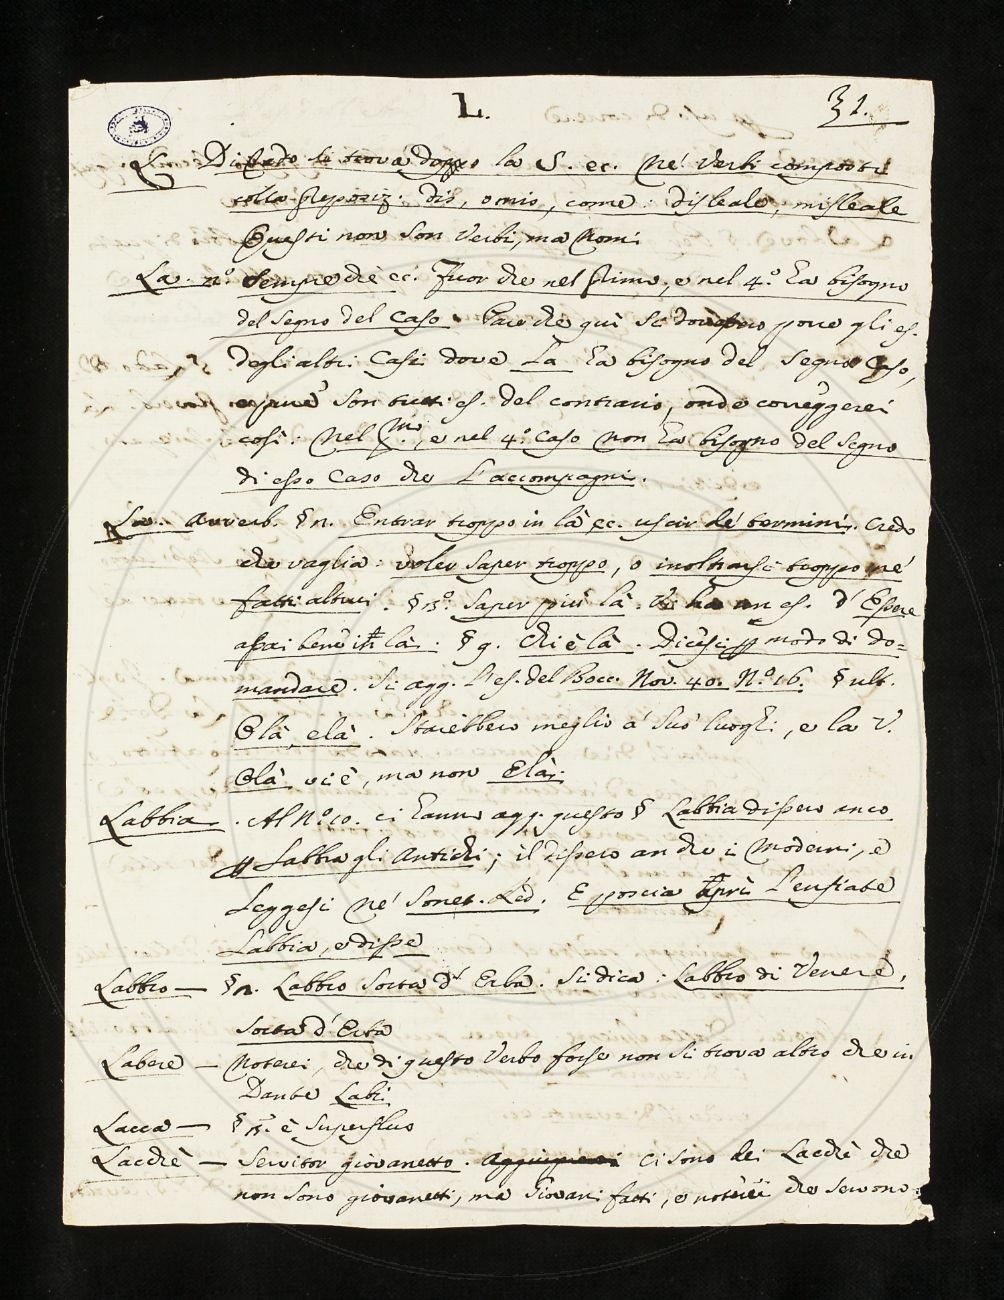 L.
31.
L. Di rado si trova dopo la S. ec. né Verbi composti
colla preposiz. dis, o mis, come: disleale, misleale
Questi non son Verbi, ma Nomi
La. n.º Sempre che ec. Fuor che nel primo, e nel 4.º ha bisogno
del segno del Caso. Pare che quì si dovessero porre gli es.
degli altri Casi dove La ha bisogno del Segno Caso,
e pure son tutti es. del contrario, onde correggerei
così: Nel pmo., e nel 4.º Caso non ha bisogno del Segno
di esso Caso che l'accompagni.
Là. Avverb. § n. Entrar troppo in là, ec. uscir de' termini. Credo
che vaglia: voler saper troppo, o inoltrarsi troppo ne'
fatti altrui. § n.º Saper più là. Vi ha un es. d'Essere
assai bene in là: § 9. Chi è là. Dicesi modo di do=
mandare. Si agg. l'es. del Bocc. Nov. 40. N.º 16. § ult.
Olà, elà. Starebbero meglio a' suoi luoghi, e la V.
Olà vi è, ma non Elà.
Labbia. Al N.º 10. ci hanno agg. questo § Labbia dissero anco
Labbra gli Antichi; il dissero anche i Moderni, e
Leggesi né Sonet. Red. E poscia aprì l'enfiate
Labbia, e disse
Labbro — § n. Labbro sorta d'Erba. Si dica: Labbro di Venere,
sorta d'Erba
Labere — Noterei, che di questo Verbo forse non si trova altro che in
Dante Labi.
Lacca — § è superfluo
Lacchè — Servitor giovanetto. Ci sono dei Lacchè che
non sono giovanetti, ma Giovani fatti, e noterei che servono